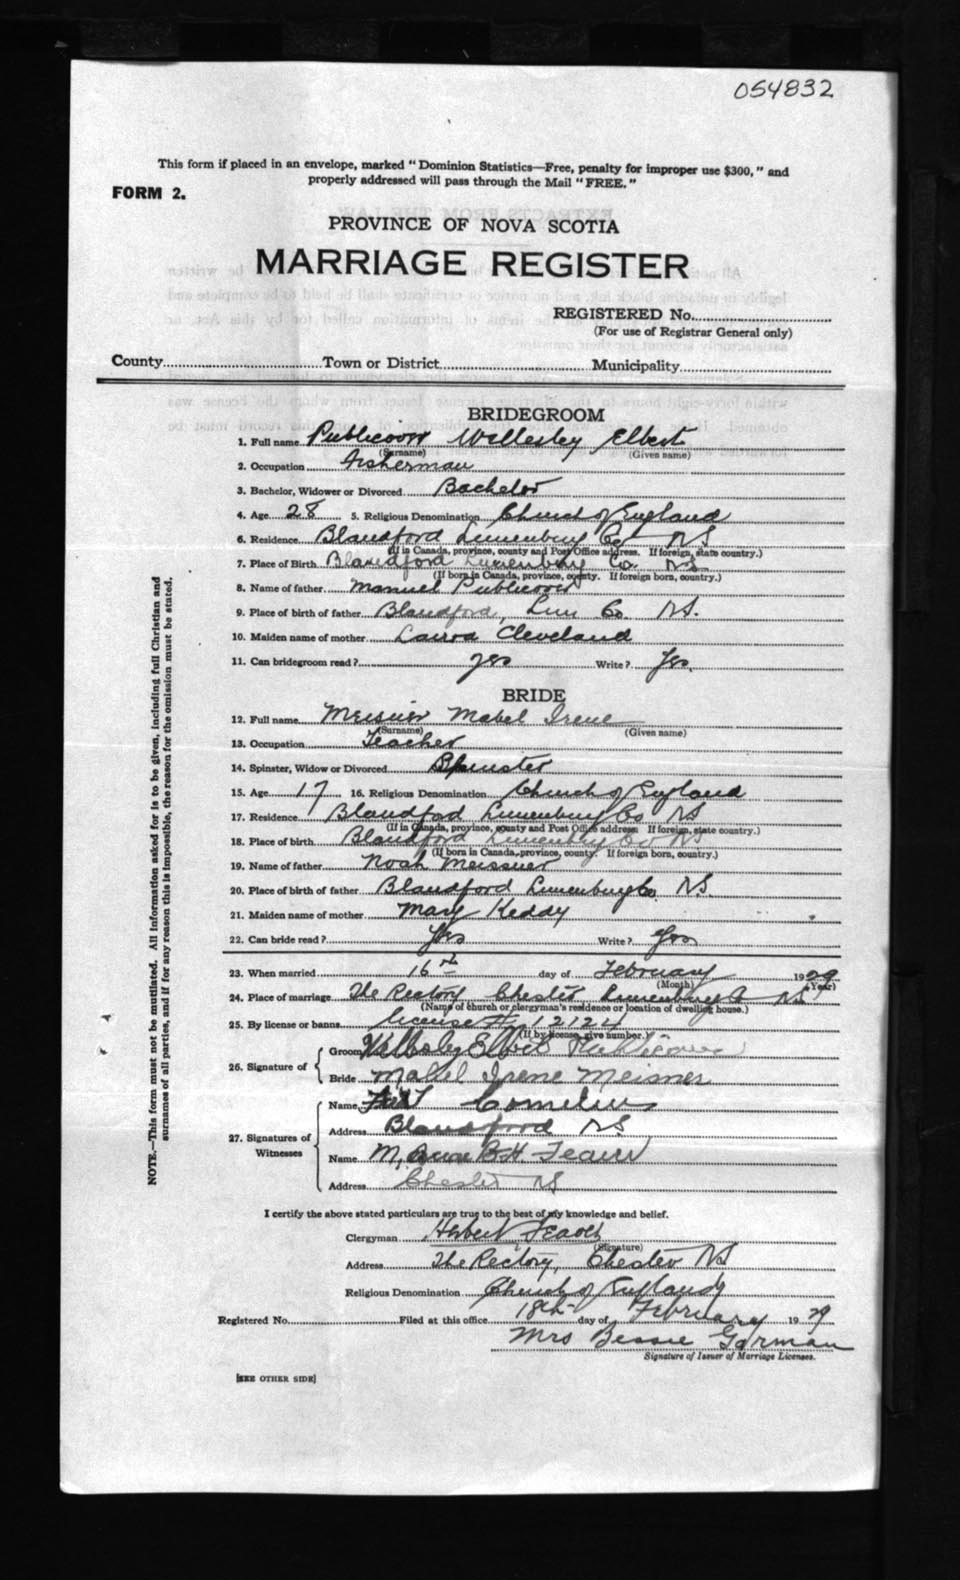 054832
This form if placed in an envelope, marked "Dominion Statistics—Free, penalty for improper use $300," and
properly addressed will pass through the Mail "FREE."
FORM 2.
PROVINCE OF NOVA SCOTIA
MARRIAGE REGISTER
REGISTERED No.
(For use of Registrar General only)
County Town or District Municipality
BRIDEGROOM
1. Full name Publicover Wellesley Elbert
(Surname) (Given name)
2. Occupation Fisherman
3. Bachelor, Widower or Divorced Bachelor
4. Age 28 5. Religious Denomination Church of England
6. Residence Blandford Lunenburg Co NS
(If in Canada, province, county and Post Office address. If foreign, state country.)
7. Place of Birth Blandford Lunenburg Co. NS
(If born in Canada, province, county. If foreign born, country.)
8. Name of father Manuel Publicover
9. Place of birth of father Blandford, Lun Co NS.
10. Maiden name of mother Laura Cleveland
11. Can bridegroom read? yes Write? Yes
BRIDE
12. Full name Meisner Mabel Irene
(Surname) (Given name)
13. Occupation Teacher
14. Spinster, Widow or Divorced Spinster
15. Age 17 16. Religious Denomination Church of England
17. Residence Blandford Lunenburg Co NS
(If in Canada, province, county and Post Office address. If foreign, state country.)
18. Place of birth Blandford Lunenburg Co NS
(If born in Canada, province, county. If foreign born, country.)
19. Name of father Noah Meissner
20. Place of birth of father Blandford Lunenburg Co NS.
21. Maiden name of mother Mary Keddy
22. Can bride read? Yes Write? Yes
23. When married 16th day of February 1929
(Month) (Year)
24. Place of marriage The Rectory Chester Lunenburg Co NS
(Name of church or clergyman's residence or location of dwelling house.)
25. By license or banns license
(If by license, give number.)
26. Signature of Groom Wellesley Elbert Publicover
Bride Mabel Irene Meisner
27. Signatures of Witnesses Name Cornelius
Address Blandford NS
Name M,
Address Chester NS
I certify the above stated particulars are true to the best of my knowledge and belief.
Clergyman Herbert
(Signature)
Address The Rectory, Chester NS
Religious Denomination Church of England
Registered No. Filed at this office 18th day of February 1929
Mrs Bessie Gorman
Signature of Issuer of Marriage Licenses.
[SEE OTHER SIDE]
NOTE.—This form must not be mutilated. All information asked for is to be given, including full Christian and
surnames of all parties, and if for any reason this is impossible, the reason for the omission must be stated.